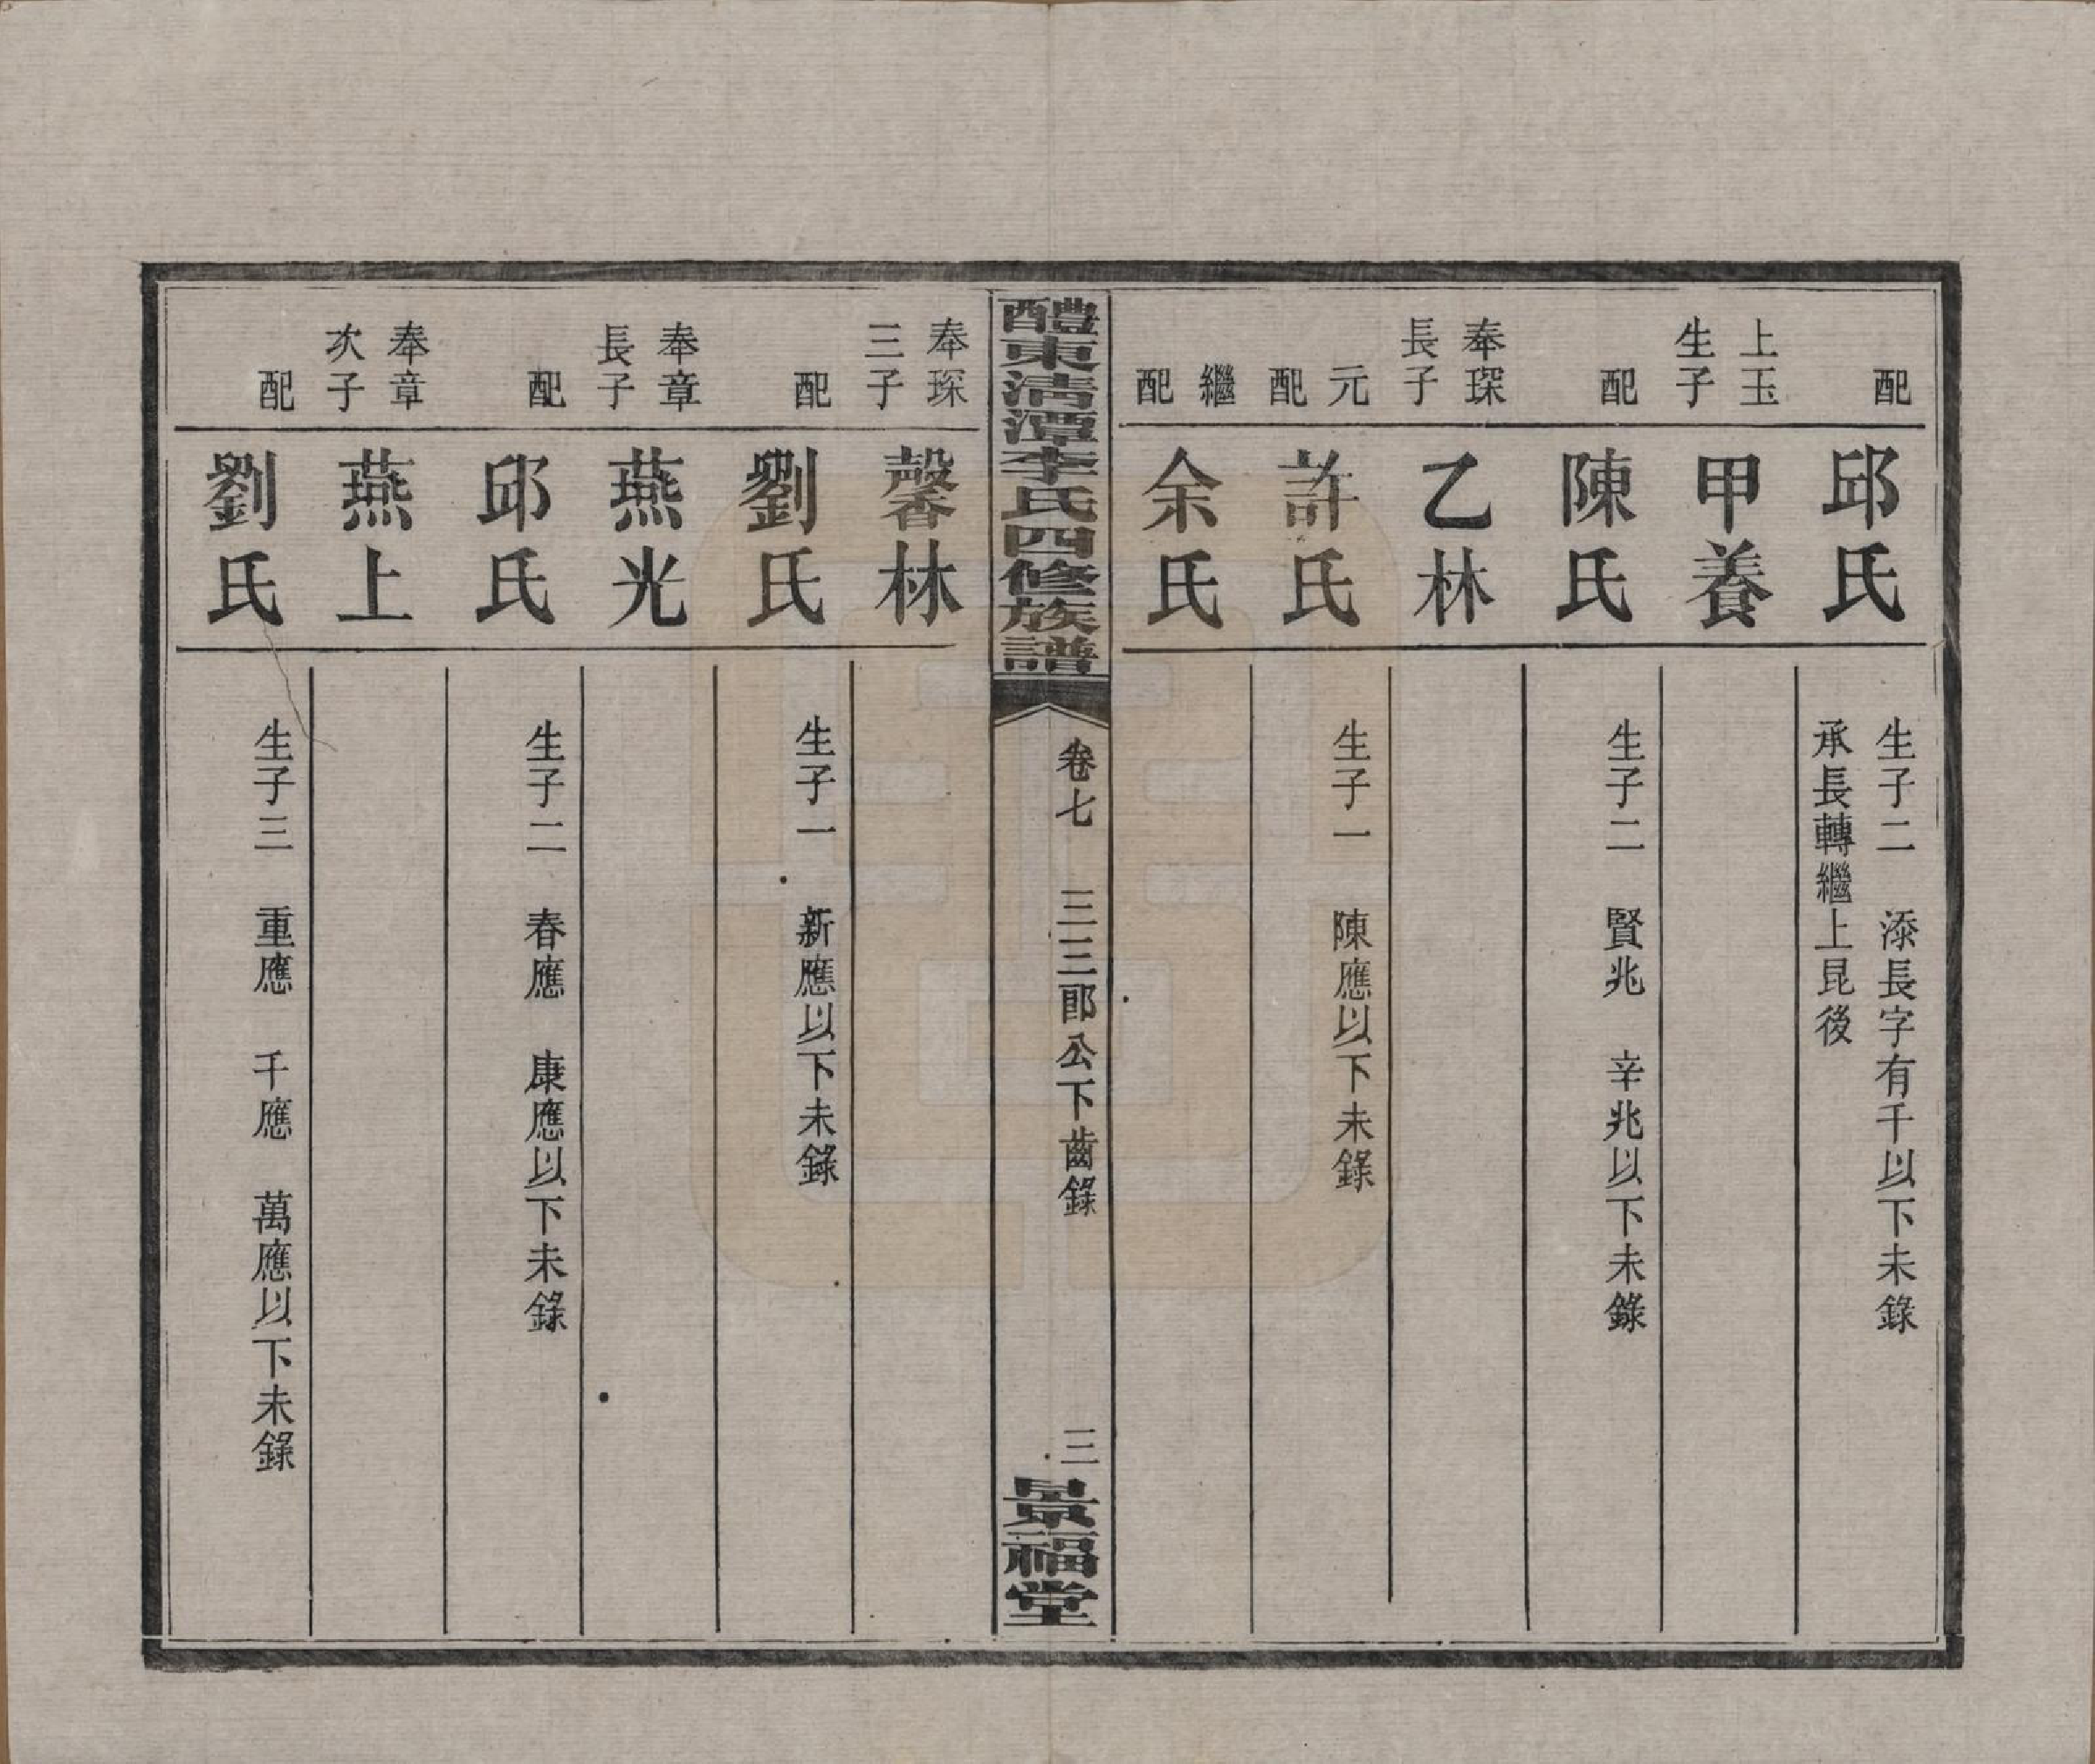 配
邱氏
生子二　添長字有千以下未錄
承長轉繼上昆後
上玉
生子
甲養
配
陳氏
生子二　賢兆　辛兆以下未錄
奉琛
長子
乙林
元
配
許氏
生子一　陳應以下未錄
繼
配
余氏
醴東清潭李氏四修族譜
卷七　三三郎公下齒錄
三
景福堂
奉琛
三子
馨林
配
劉氏
生子一　新應以下未錄
奉章
長子
燕光
配
邱氏
生子二　春應　康應以下未錄
奉章
次子
燕上
配
劉氏
生子三　重應　千應　萬應以下未錄